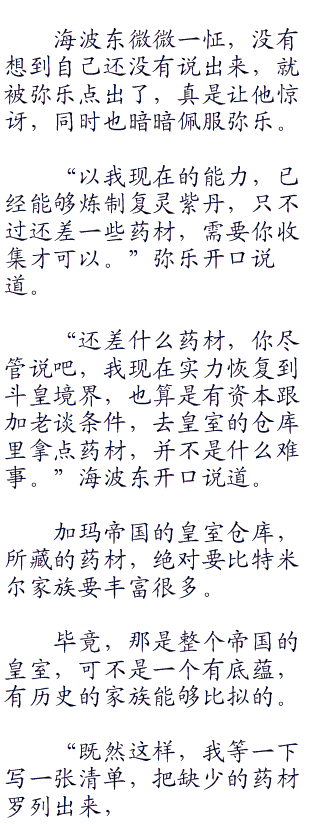 海波东微微一怔，没有
想到自己还没有说出来，就
被弥乐点出了，真是让他惊
讶，同时也暗暗佩服弥乐。
“以我现在的能力，已
经能够炼制复灵紫丹，只不
过还差一些药材，需要你收
集才可以。”弥乐开口说
道。
“还差什么药材，你尽
管说吧，我现在实力恢复到
斗皇境界，也算是有资本跟
加老谈条件，去皇室的仓库
里拿点药材，并不是什么难
事。”海波东开口说道。
加玛帝国的皇室仓库，
所藏的药材，绝对要比特米
尔家族要丰富很多。
毕竟，那是整个帝国的
皇室，可不是一个有底蕴，
有历史的家族能够比拟的。
“既然这样，我等一下
写一张清单，把缺少的药材
罗列出来，